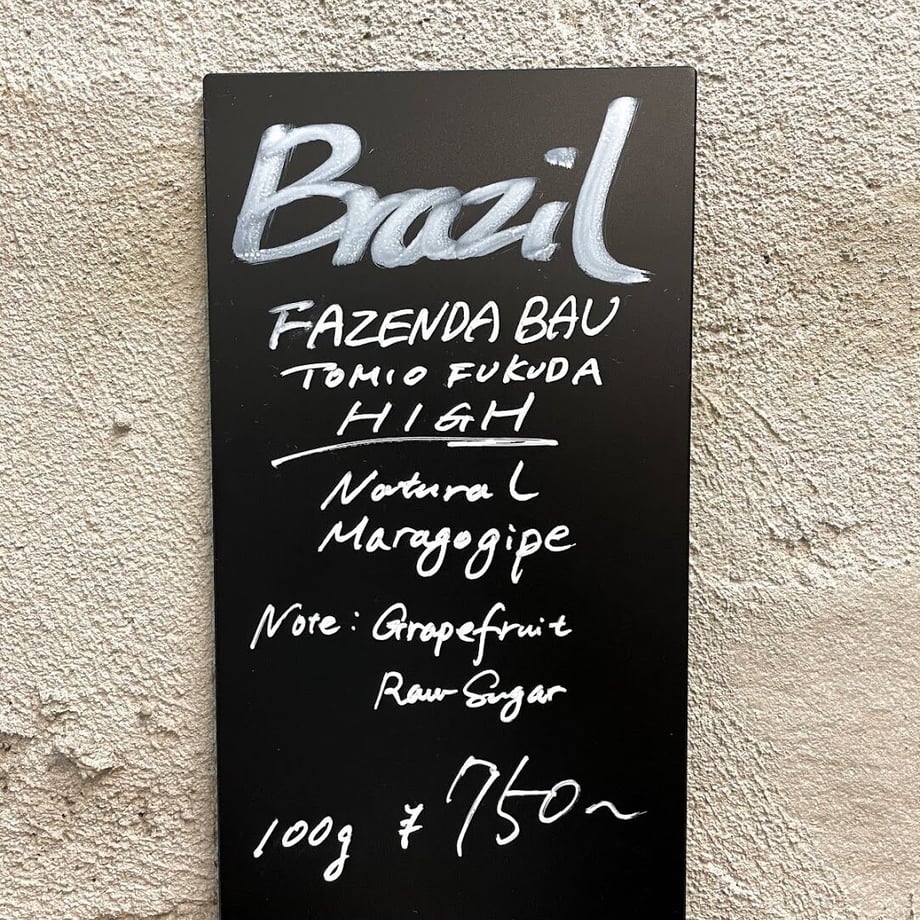 Brazil
FAZENDA BAU
TOMIO FUKUDA
HIGH
Natural
Maragogipe
Note: Grapefruit
Raw Sugar
100g ¥750~